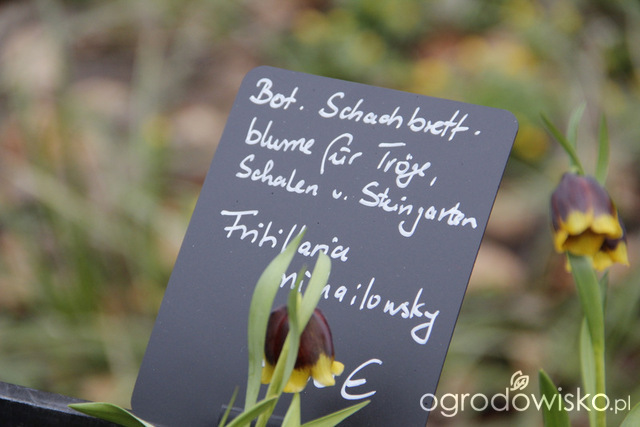 Bot. Schachbrett.
blume für Tröge,
Schalen u. Steingarten
Fritillaria
mihailowsky
€
ogrodowisko.pl